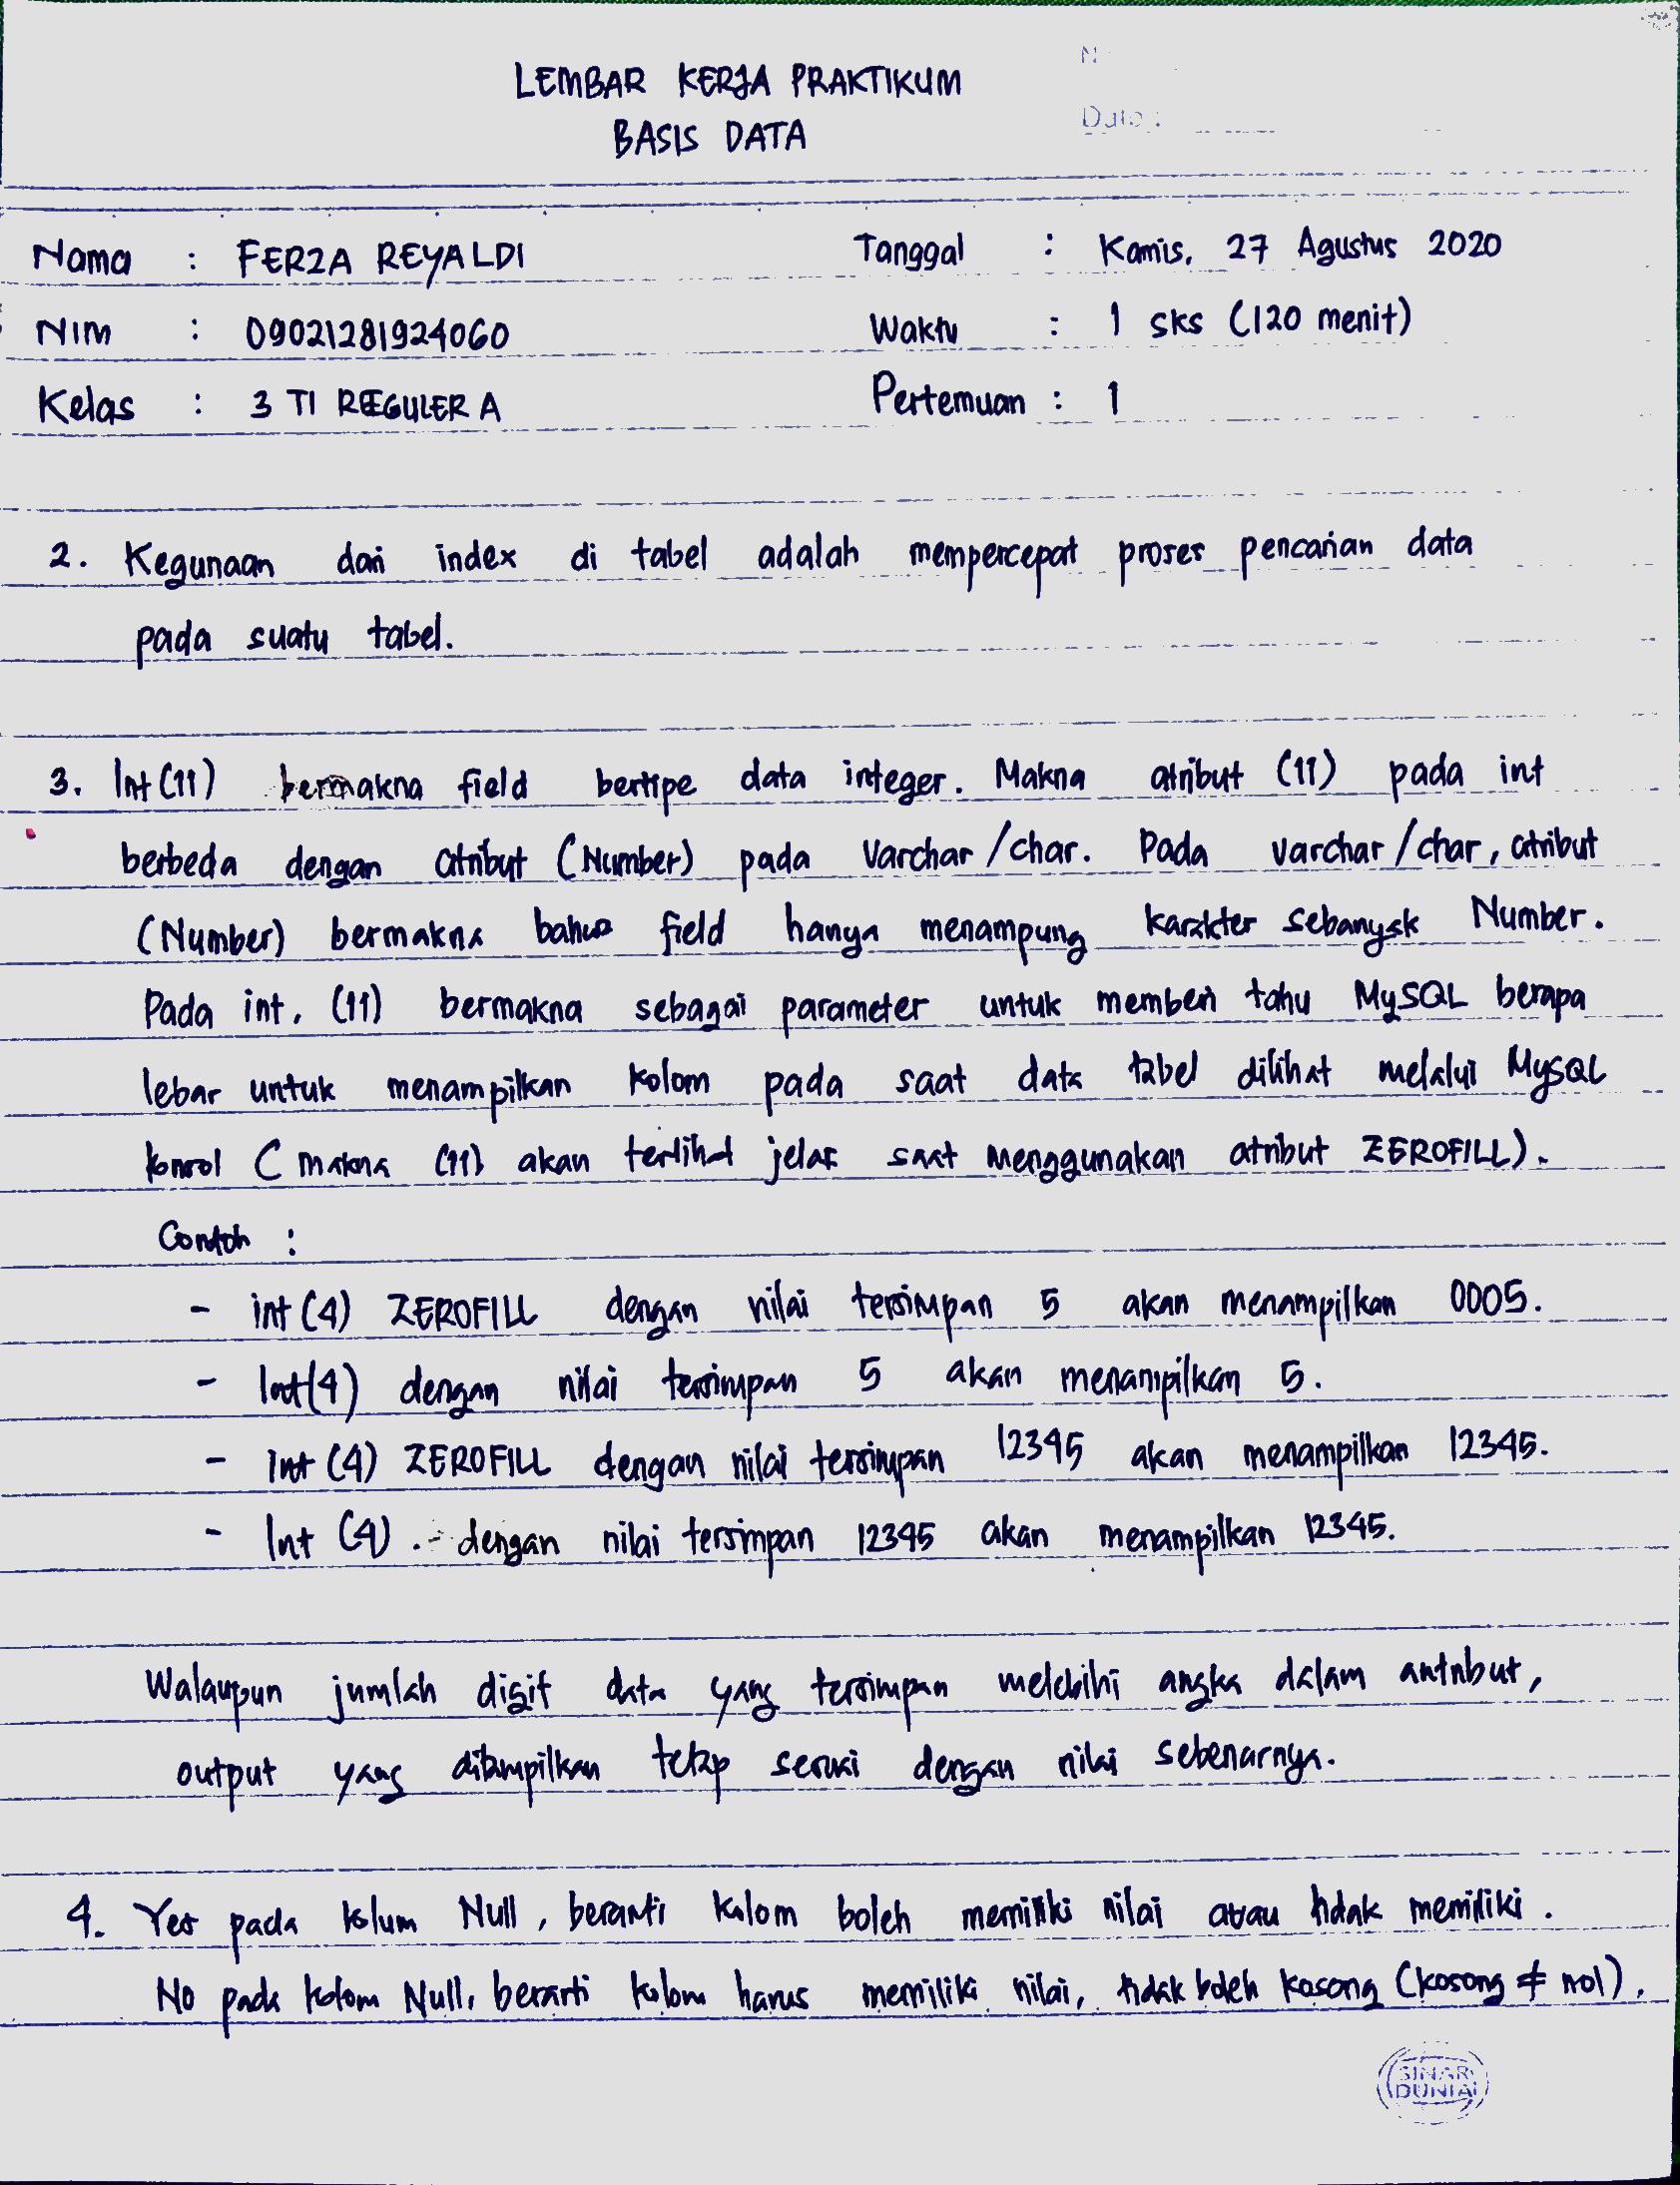 LEMBAR KERJA PRAKTIKUM
BASIS DATA
Date :
Nama : FERZA REYALDI
Tanggal : Kamis, 27 Agustus 2020
NIM : 09021281924060
Waktu : 1 sks (120 menit)
Kelas : 3 TI REGULER A
Pertemuan : 1
2. Kegunaan dari index di tabel adalah mempercepat proses pencarian data
pada suatu tabel.
3. Int (11) bermakna field bertipe data integer. Makna atribut (11) pada int
berbeda dengan atribut (Number) pada Varchar/char. Pada varchar/char, atribut
(Number) bermakna bahwa field hanya menampung karakter sebanyak Number.
Pada int, (11) bermakna sebagai parameter untuk memberi tahu MySQL berapa
lebar untuk menampilkan kolom pada saat data tabel dilihat melalui MySQL
konsol (makna (11) akan terlihat jelas saat menggunakan atribut ZEROFILL).
Contoh :
- int (4) ZEROFILL dengan nilai tersimpan 5 akan menampilkan 0005.
- Int(4) dengan nilai tersimpan 5 akan menampilkan 5.
- int (4) ZEROFILL dengan nilai tersimpan 12345 akan menampilkan 12345.
- Int (4) dengan nilai tersimpan 12345 akan menampilkan 12345.
Walaupun jumlah digit data yang tersimpan melebihi angka dalam antribut,
output yang ditampilkan tetap sesuai dengan nilai sebenarnya.
4. Yes pada kolum Null, berarti kolom boleh memiliki nilai atau tidak memiliki.
No pada kolom Null, berarti kolom harus memiliki nilai, tidak boleh kosong (kosong ≠ nol).
SINAR
DUNIA